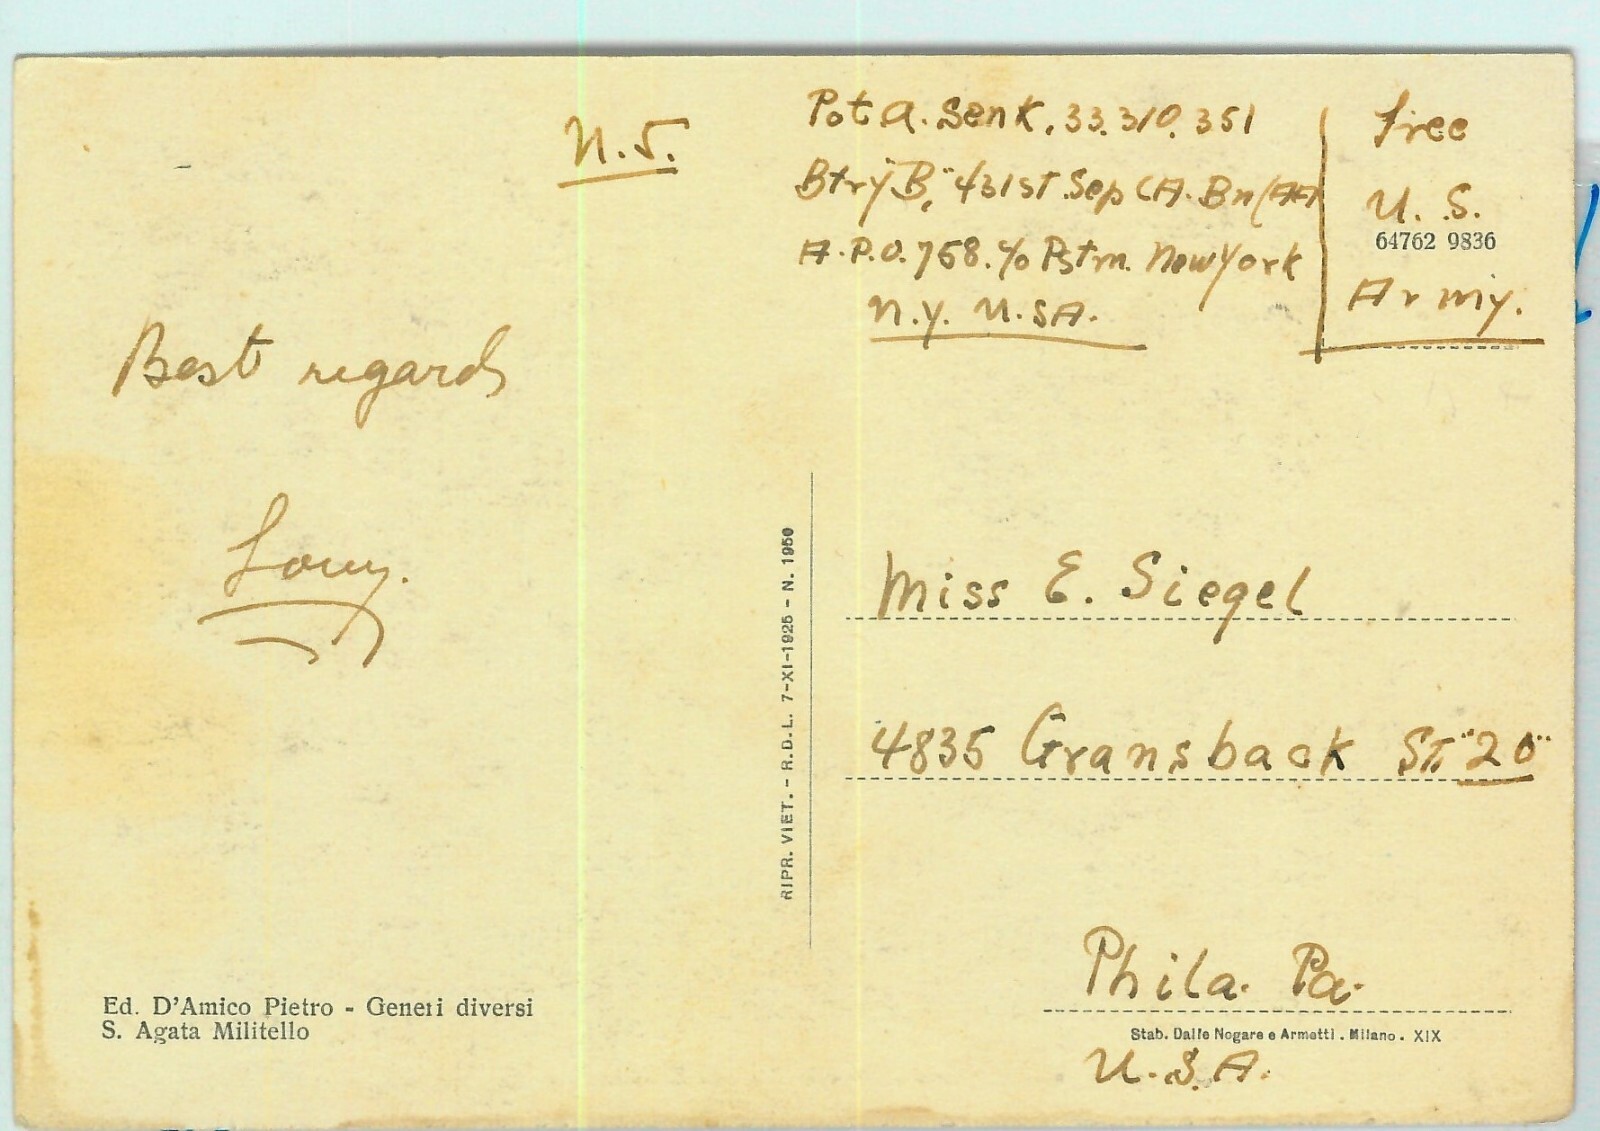 N.J.
Pvt A. Senk. 33.310.351
Btry "B," 431st Sep CA. Bn (AA
A.P.O. 758. c/o Pstm. New York
N.Y. U.SA.
Free
U. S.
64762 9836
Army.
Best regards
Miss E. Siegel
4835 Gransback ST. "20"
Phila. Pa.
U.S.A.
RIPR. VIET. - R.D.L. 7-XI-1925 - N. 1950
Ed. D'Amico Pietro - Generi diversi
S. Agata Militello
Stab. Dalle Nogare e Armetti . Milano . XIX